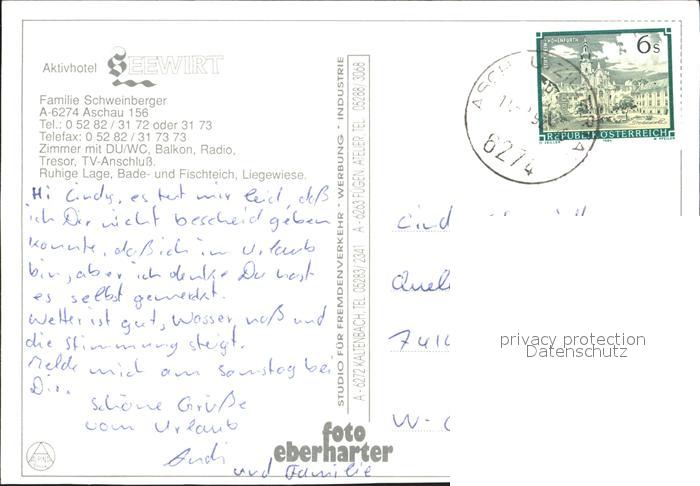 Aktivhotel SEEWIRT
Familie Schweinberger
A-6274 Aschau 156
Tel.: 0 52 82 / 31 72 oder 31 73
Telefax: 0 52 82 / 31 73 73
Zimmer mit DU/WC, Balkon, Radio,
Tresor, TV-Anschluß.
Ruhige Lage, Bade- und Fischteich, Liegewiese.
Hi Cindy, es tut mir leid, daß
ich Dir nicht bescheid geben
konnte, daß ich in Urlaub
bin, aber ich denke Du hast
es selbst gemerkt.
Wetter ist gut, Wasser naß und
die Stimmung steigt.
Melde mich am Samstag bei
Dir.
Schöne Grüße
vom Urlaub
Andi
und Familie
STUDIO FÜR FREMDENVERKEHR · WERBUNG · INDUSTRIE
A - 6272 KALTENBACH, TEL. 05283/2341 A - 6263 FÜGEN, ATELIER TEL. 05288/3068
foto
eberharter
6s
REPUBLIK ÖSTERREICH
6274
privacy protection
Datenschutz